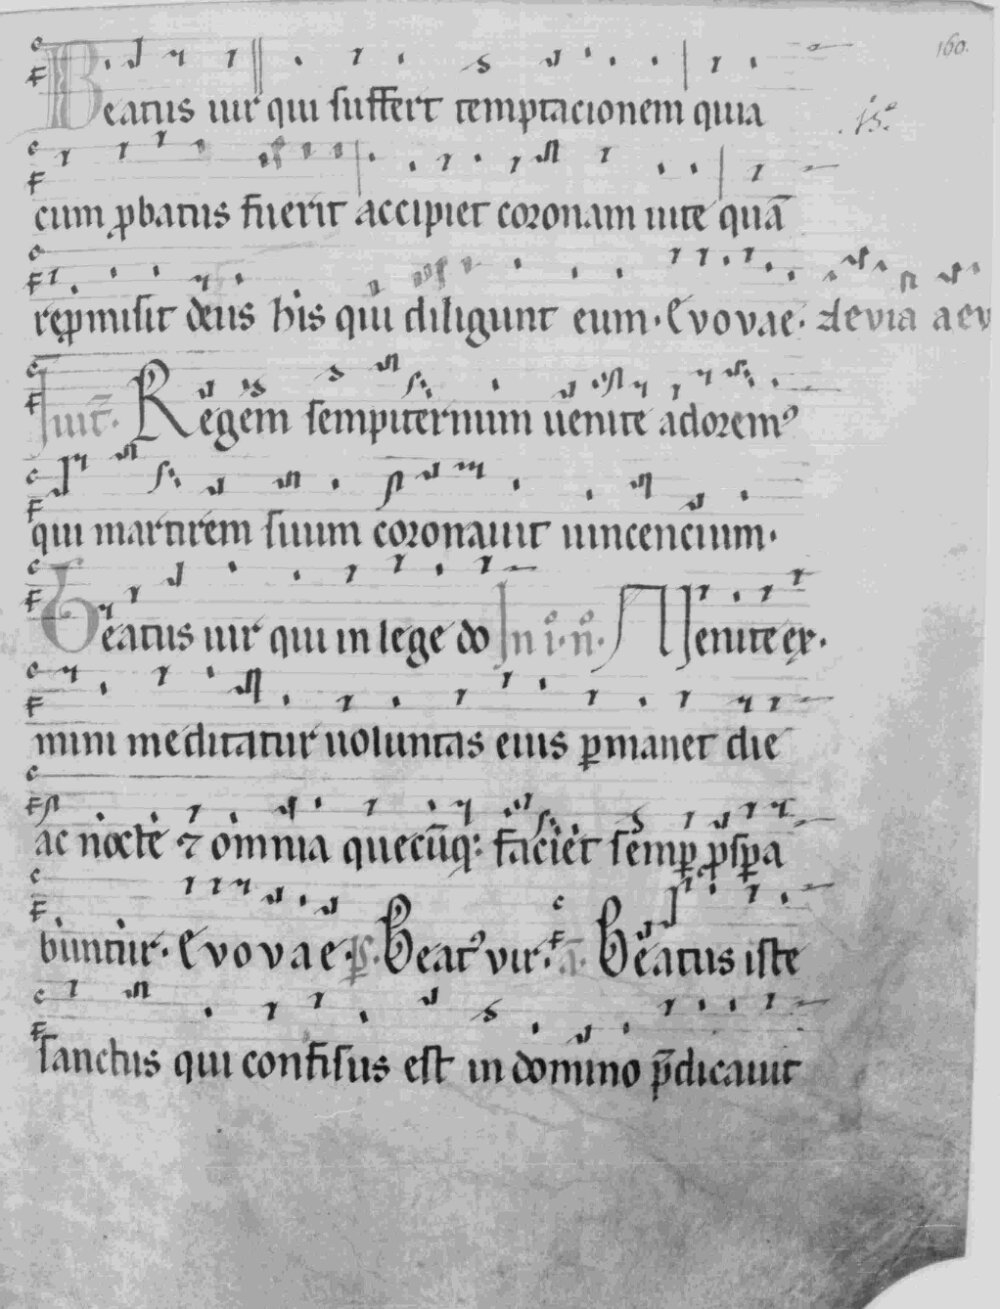 160.
Beatus uir qui suffert temptacionem quia
cum ꝓbatus fuerit accipiet coronam uite quā
rep̱misit deus his qui diligunt eum. Evovae. aevia aev
Inuit̄. Regem sempiternum uenite adoremꝰ
qui martirem suum coronauit uincencium.
Beatus uir qui in lege do In i.n. Uenite ex.
mini meditatur uoluntas eius ꝑmanet die
ac nocte ⁊ omnia quecūq: faciet semꝑ ꝓsꝑa
buntur. Evovae. ps. Beatꝰ vir. a. Beatus iste
sanctus qui confisus est in domino p̄dicauit